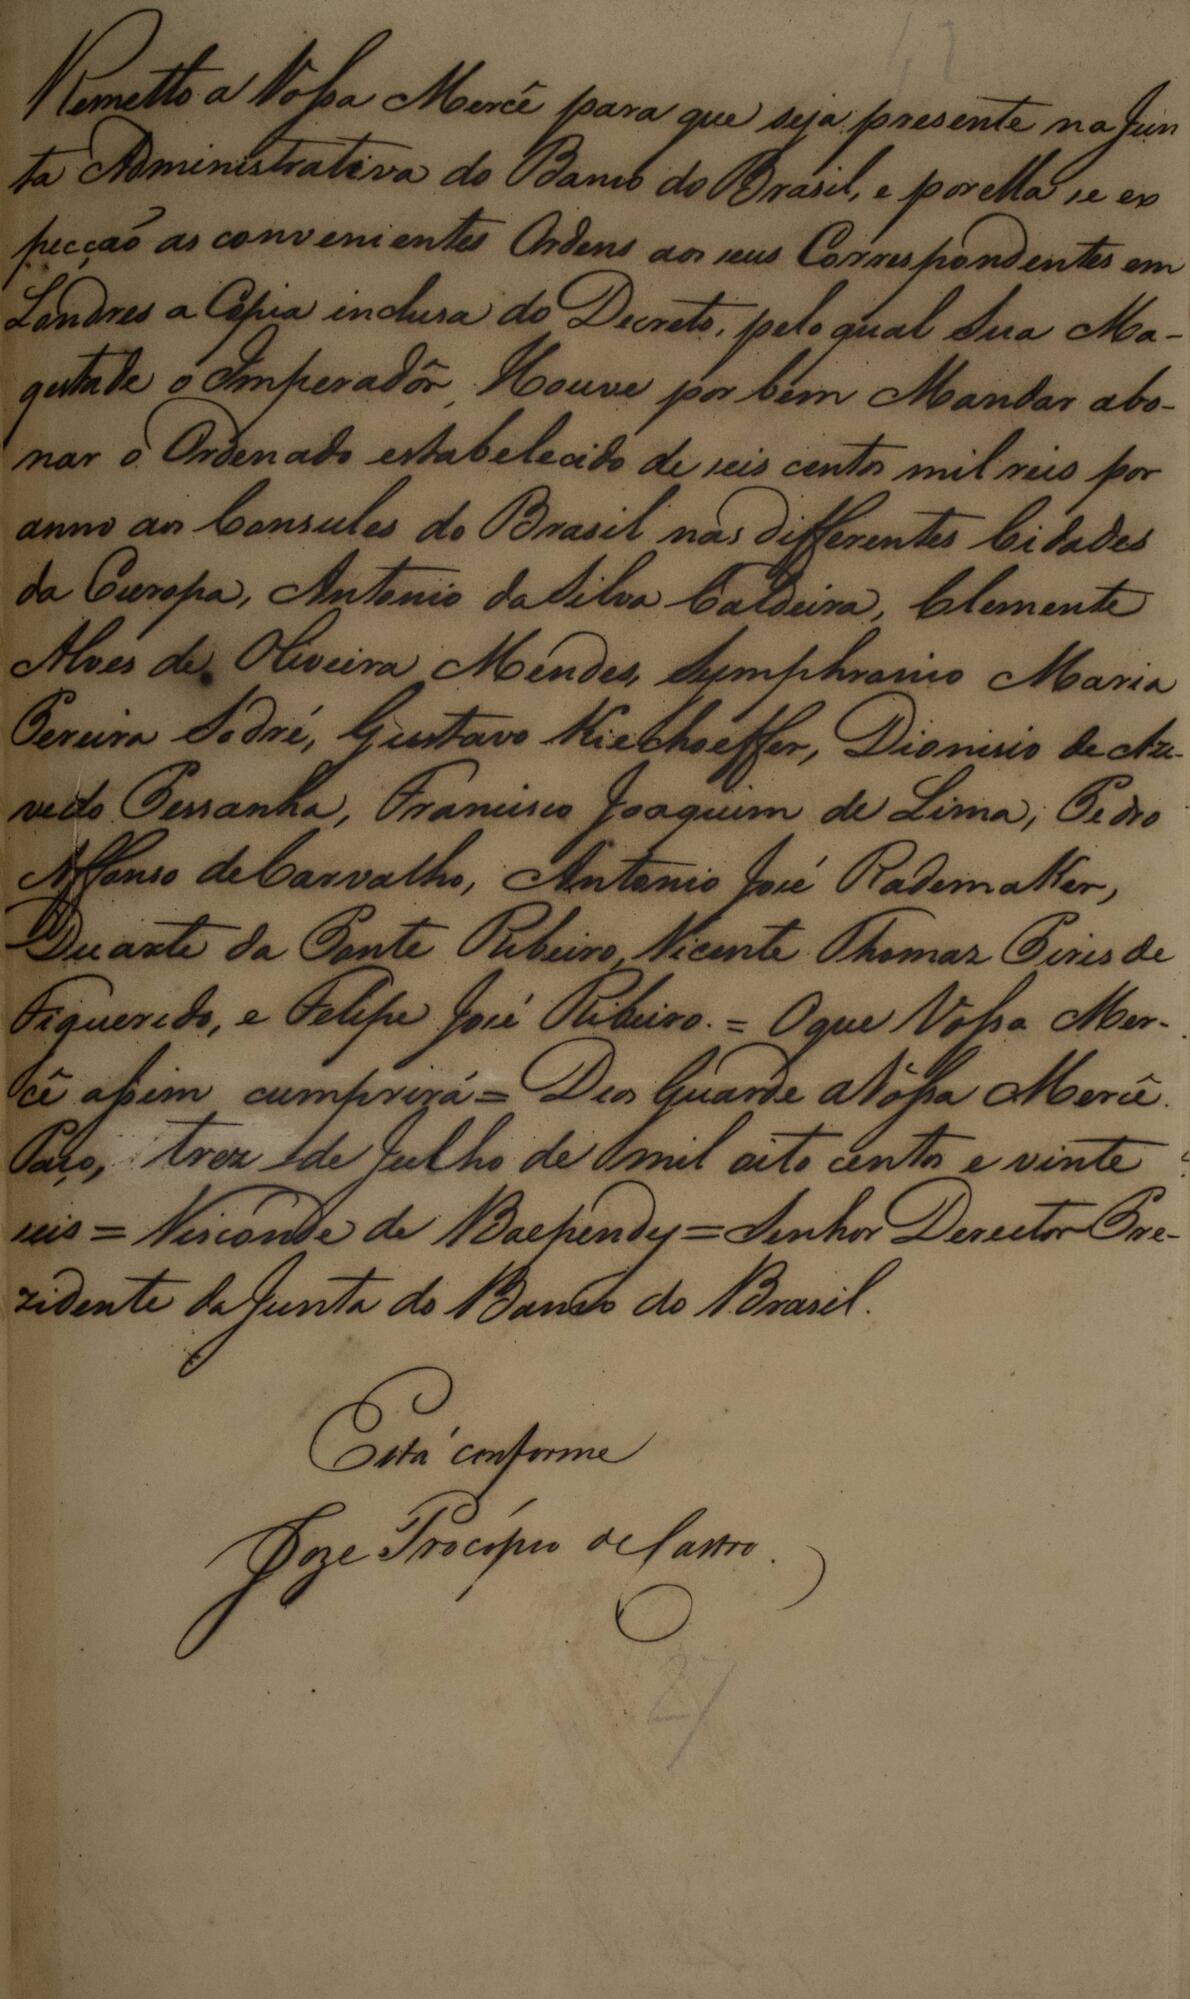 Remetto a Vossa Mercê para que seja presente na Jun
ta Administrativa do Banco do Brasil, e por ella se ex
pecção as convenientes Ordens aos seus Correspondentes em
Londres a Cópia inclusa do Decreto, pelo qual Sua Ma-
gestade o Imperadôr, Houve por bem Mandar abo-
nar o Ordenado estabelecido de seis centos mil reis por
anno aos Consules do Brasil nas differentes Cidades
da Europa, Antonio da Silva Caldeira, Clemente
Alves de Oliveira Mendes, Symphronio Maria
Pereira Sodré, Gustavo Kieckhoeffer, Dionisio de Aze-
vedo Pessanha, Francisco Joaquim de Lima, Pedro
Affonso de Carvalho, Antonio José Rademaker,
Duarte da Ponte Ribeiro, Vicente Thomaz Pires de
Figueredo, e Felipe José Ribeiro. = O que Vossa Mer-
cê assim cumprirá = Deos Guarde a Vóssa Mercê.
Paço, trez de Julho de mil oito centos e vinte
seis = Visconde de Baependy = Senhor Derector Pre-
zidente da Junta do Banco do Brasil.
Está conforme
Joze Procópio de Castro.
27